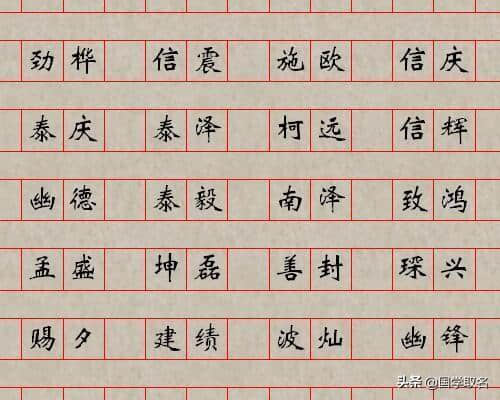 劲桦 信震 施欧 信庆
泰庆 泰泽 柯远 信辉
幽德 泰毅 南泽 致鸿
孟盛 坤磊 善封 琛兴
赐夕 建绩 波灿 幽锋
头条 @国学取名